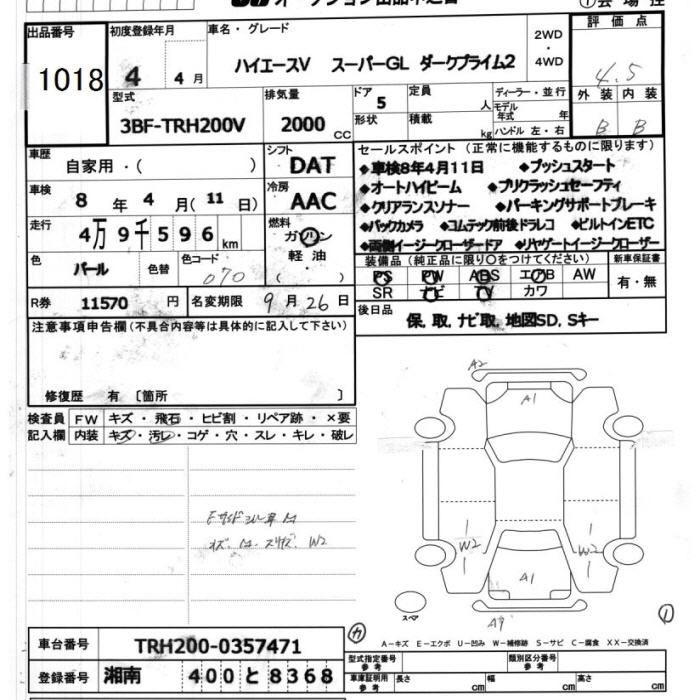 出品番号
1018
初度登録年月
4 4月
車名・グレード
ハイエースV スーパーGL ダークプライム2
2WD
・
4WD
評価点
4.5
外装 内装
B B
型式
3BF-TRH200V
排気量
2000 CC
ドア 5
形状
定員 人
積載 kg
ディーラー・並行
モデル年式 年
ハンドル 左・右
車歴
自家用・( )
シフト
DAT
車検
8年 4月(11日)
冷房
AAC
走行
4万9千596km
燃料
ガソリン
軽油・
( )
色
パール
色替
色コード
070
R券 11570円
名変期限 9月26日
セールスポイント (正常に機能するものに限ります)
◆車検8年4月11日 ◆プッシュスタート
◆オートハイビーム ◆プリクラッシュセーフティ
◆クリアランスソナー ◆パーキングサポートブレーキ
◆バックカメラ ◆コムテック前後ドラレコ ◆ビルトインETC
◆両側イージークローザードア ◆リヤゲートイージークローザー
装備品 (純正品に限り○をつけてください)
PS PW ABS エアB AW
SR ナビ TV カワ
新車保証書
有・無
後日品
保, 取, ナビ取, 地図SD, Sキー
注意事項申告欄(不具合内容等は具体的に記入して下さい)
修復歴 有 〔箇所 〕
検査員記入欄
FW キズ・飛石・ヒビ割・リペア跡・×要
内装 キズ・汚レ・コゲ・穴・スレ・キレ・破レ
A2
A1
W2
A1
スペア
A-キズ E-エクボ U-凹み W-補修跡 S-サビ C-腐食 XX-交換済
車台番号 TRH200-0357471
登録番号 湘南 400 と 8368
カ
型式指定番号 参考
類別区分番号 参考
車庫証明用 参考
長さ cm 幅 cm 高さ cm